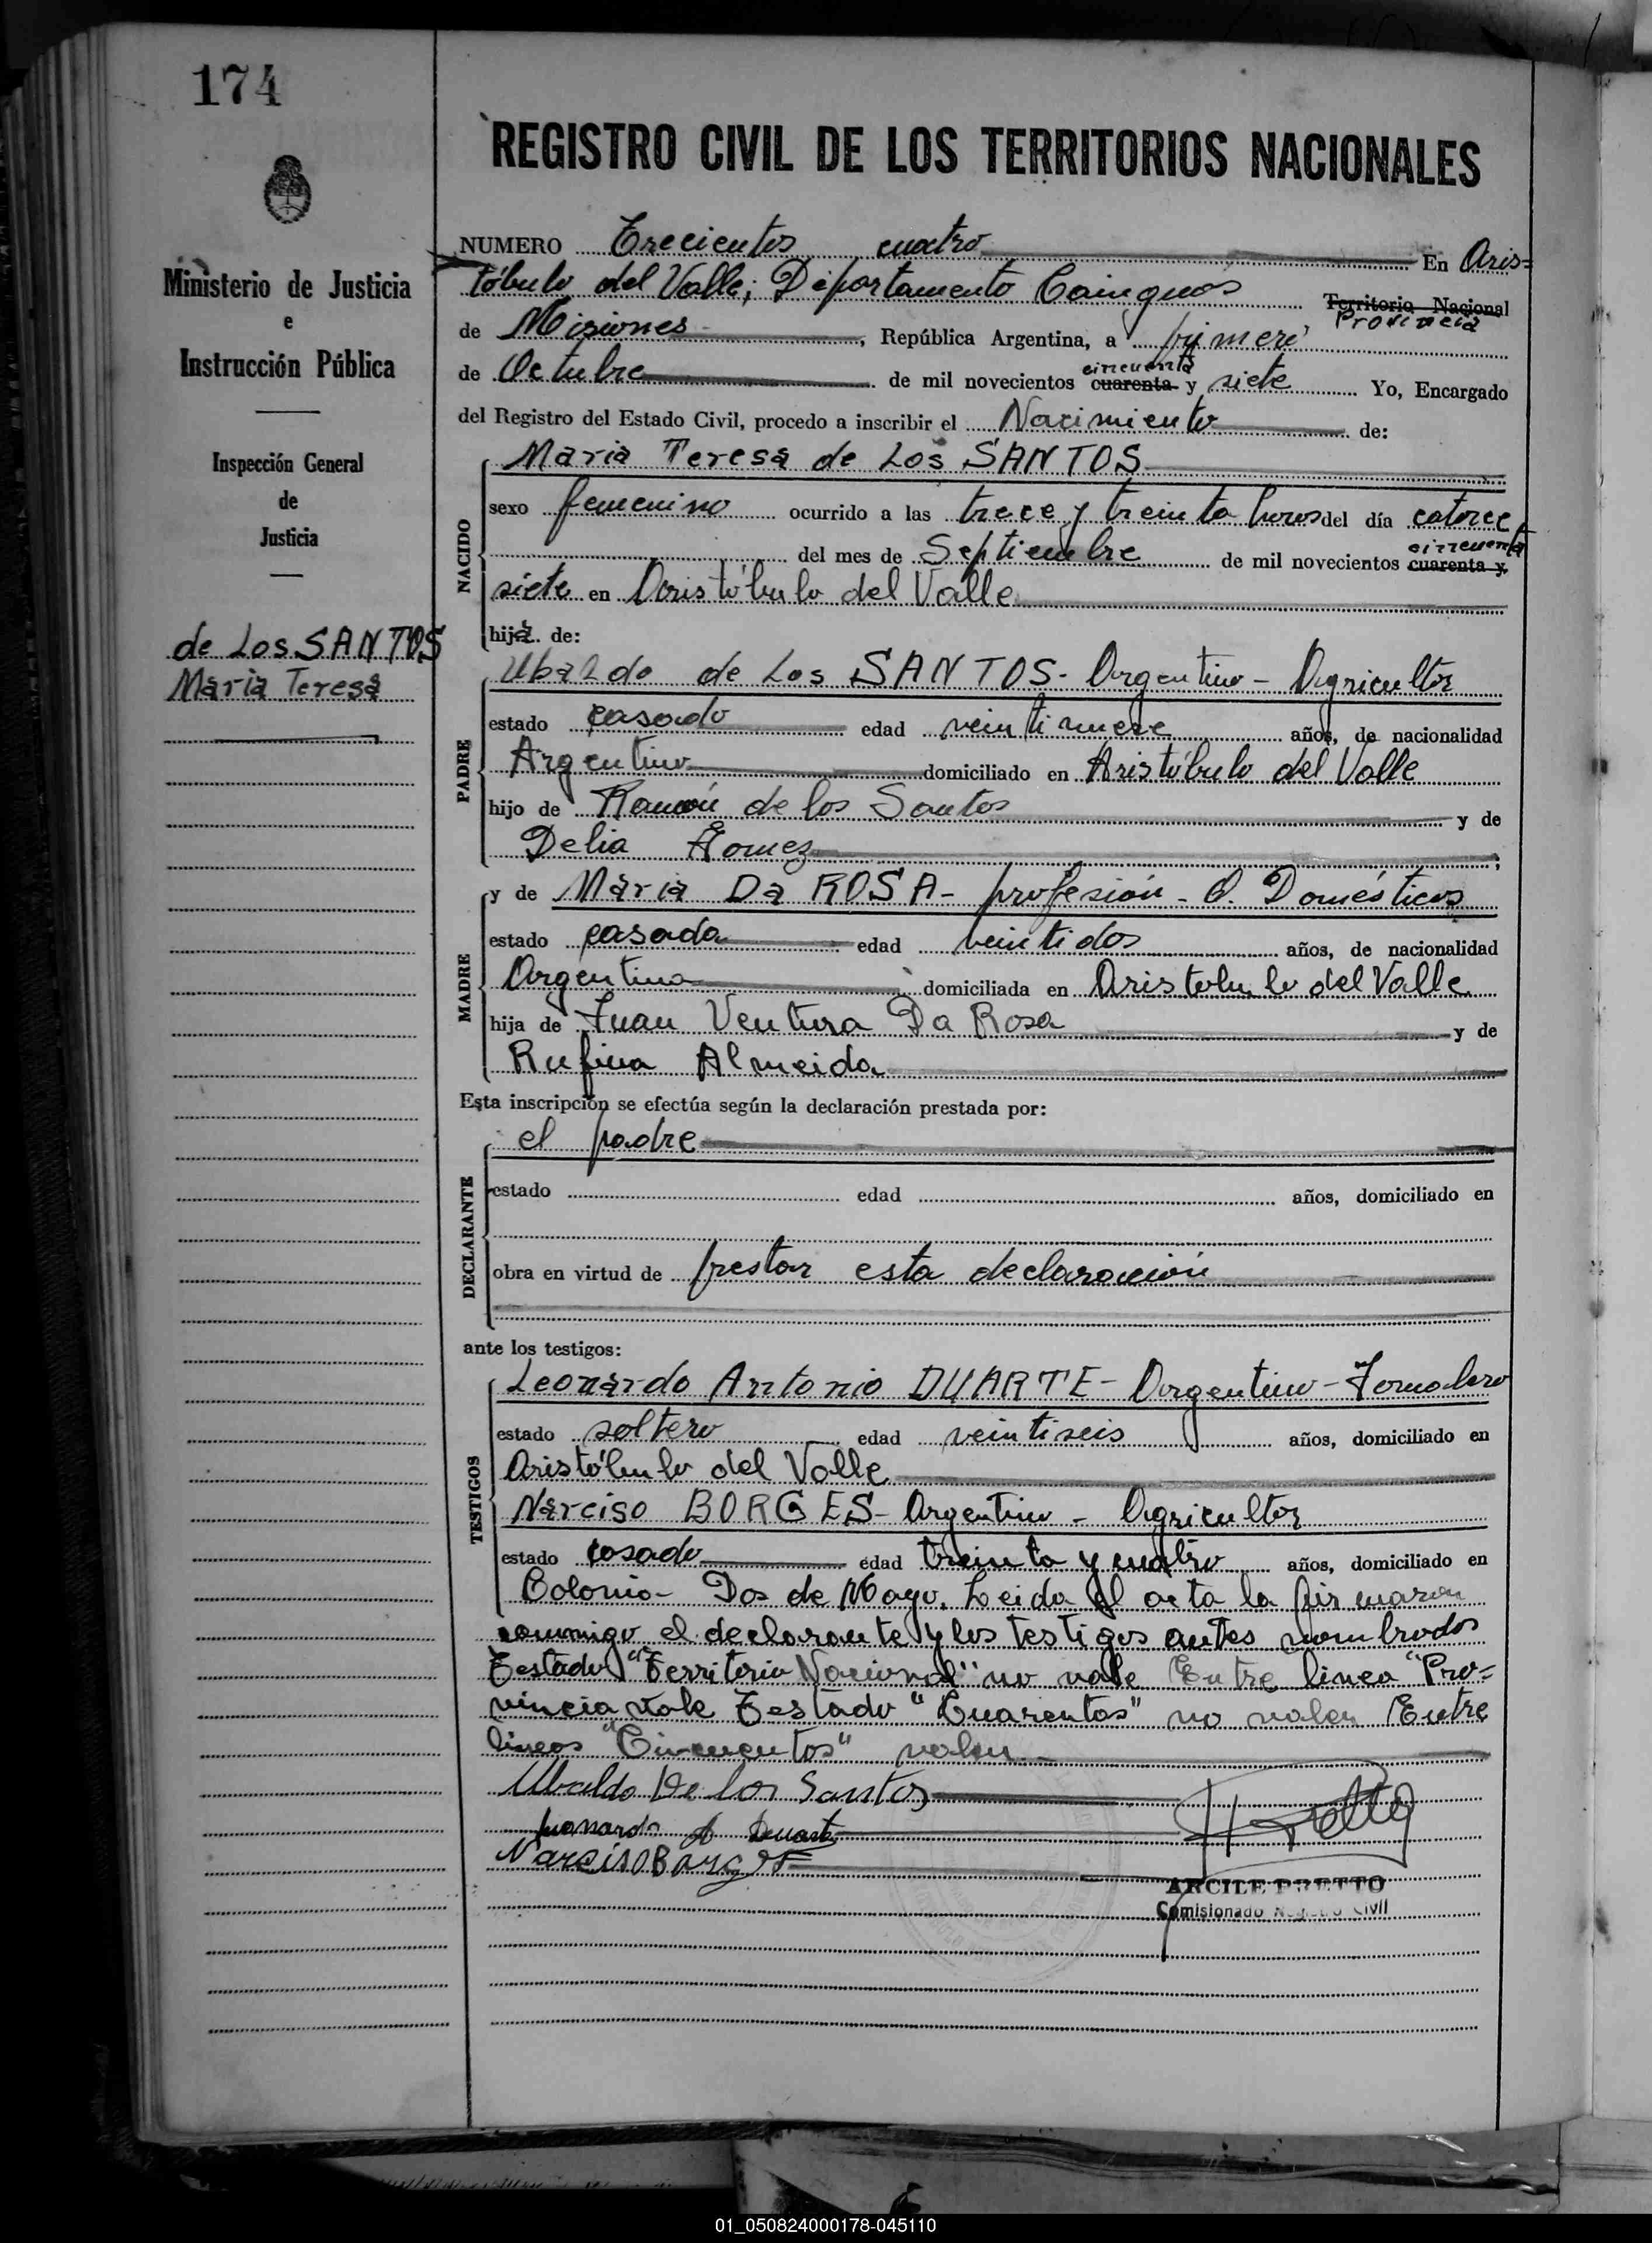 174
REGISTRO CIVIL DE LOS TERRITORIOS NACIONALES
Ministerio de Justicia
e
Instrucción Pública
Inspección General
de
Justicia
de Los SANTOS
Maria Teresa
NUMERO Trecientos cuatro En Aris=
tóbulo del Valle; Departamento Cainguas Territorio Nacional
Provincia
de Misiones, República Argentina, a primero
de Octubre de mil novecientos cuarenta y siete Yo, Encargado
cincuenta
del Registro del Estado Civil, procedo a inscribir el Nacimiento de:
NACIDO
Maria Teresa de Los SANTOS
sexo femenino ocurrido a las trece y treinta horas del día catorce
del mes de Septiembre de mil novecientos cuarenta y
cincuenta
siete en Aristóbulo del Valle
hija de:
PADRE
Ubaldo de Los SANTOS - Argentino - Agricultor
estado casado edad veintinueve años, de nacionalidad
Argentino domiciliado en Aristóbulo del Valle
hijo de Ramón de los Santos y de
Delia Gomez;
MADRE
y de Maria Da ROSA - profesión - Q. Domésticos
estado casada edad veintidos años, de nacionalidad
Argentina domiciliada en Aristobulo del Valle
hija de Juan Ventura Da Rosa y de
Rufina Almeida
Esta inscripción se efectúa según la declaración prestada por:
DECLARANTE
el padre
estado edad años, domiciliado en
obra en virtud de prestar esta declaración
ante los testigos:
TESTIGOS
Leonardo Antonio DUARTE - Argentino - Jornalero
estado soltero edad veintiseis años, domiciliado en
Aristóbulo del Valle
Narciso BORGES - Argentino - Agricultor
estado casado edad treinta y cuatro años, domiciliado en
Colonia - Dos de Mayo. Leida el acta la firmaron
conmigo el declarante y los testigos antes nombrados
Testado "Territorio Nacional" no vale Entre linea "Pro=
vincia vale Testado "Cuarentas" no valen Entre
lineas "Cincuentas" valen
Ubaldo De los Santos
Leonardo A Duarte
Narciso Borges
ARCILE PRETTO
Comisionado Registro Civil
01_050824000178-045110